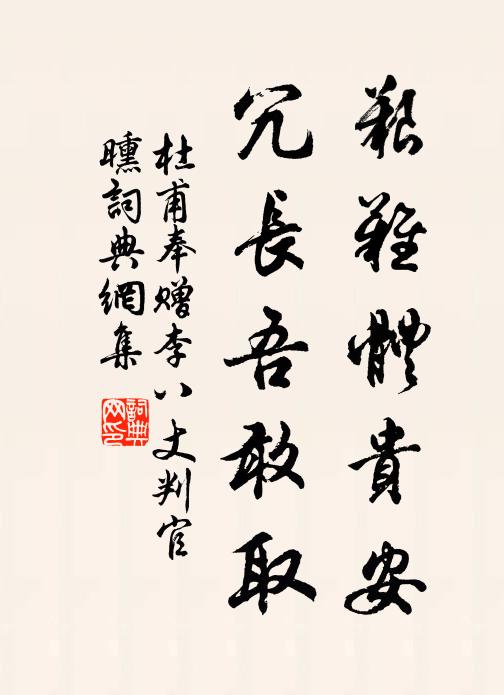 艱難體貴安
冗長吾敢取
杜甫奉贈李八丈判官
曛詞典網集
詞典網印